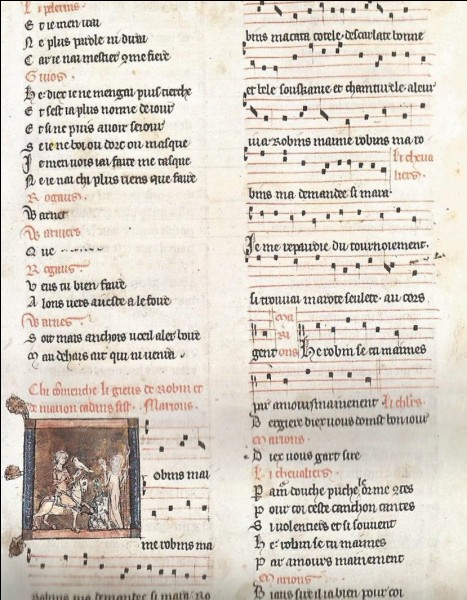 Li pelerins.
E t ie men vau
N e plus parole ni avra
C ar ie nai mestier 9me fiere
Guios.
H e dier ie ne mengai puis tierche
E t sest ia plus nonne de iour
E t si ne puis avoir seiour
S e ie ne boi ou dorc ou masque
J e men vois iai faite me tasque
N e ie nai chi plus riens que faire
Rogaus.
Warnet
Warnies
Q ue
Rogaus.
V eus tu bien faire
A lons vers aieste a le foire
Warnes.
S oit mais anchois voeil aler boire
M au dehais ait qui ni venra
Chi comenche li gieus de robin et
de marion cadans fist. Marions.
obins mai
me robins ma
Robins ma demandee si mara. Ro
bins macata cotele descarlate bonne
et bele souskanie et chainturele aleur
iva Robins maime robins ma ro
li cheva
liers.
bins ma demandee si mara
Je me repairoie du tournoiement.
si trouvai marote seulete. au cors
gent
ma
ri
ons
He robin se tu maimes
par amours mainement
li chlrs.
B ergiere diex vous doinst bon iour
Marions.
D iex vous gart sire
Li chevaliers.
P
douche puche
P our coi ceste canchon cantes
S i volentiers et si souvent
H e robin se tu maimes
P ar amours mainement
Marions
B iaus sire il i a bien pour coi